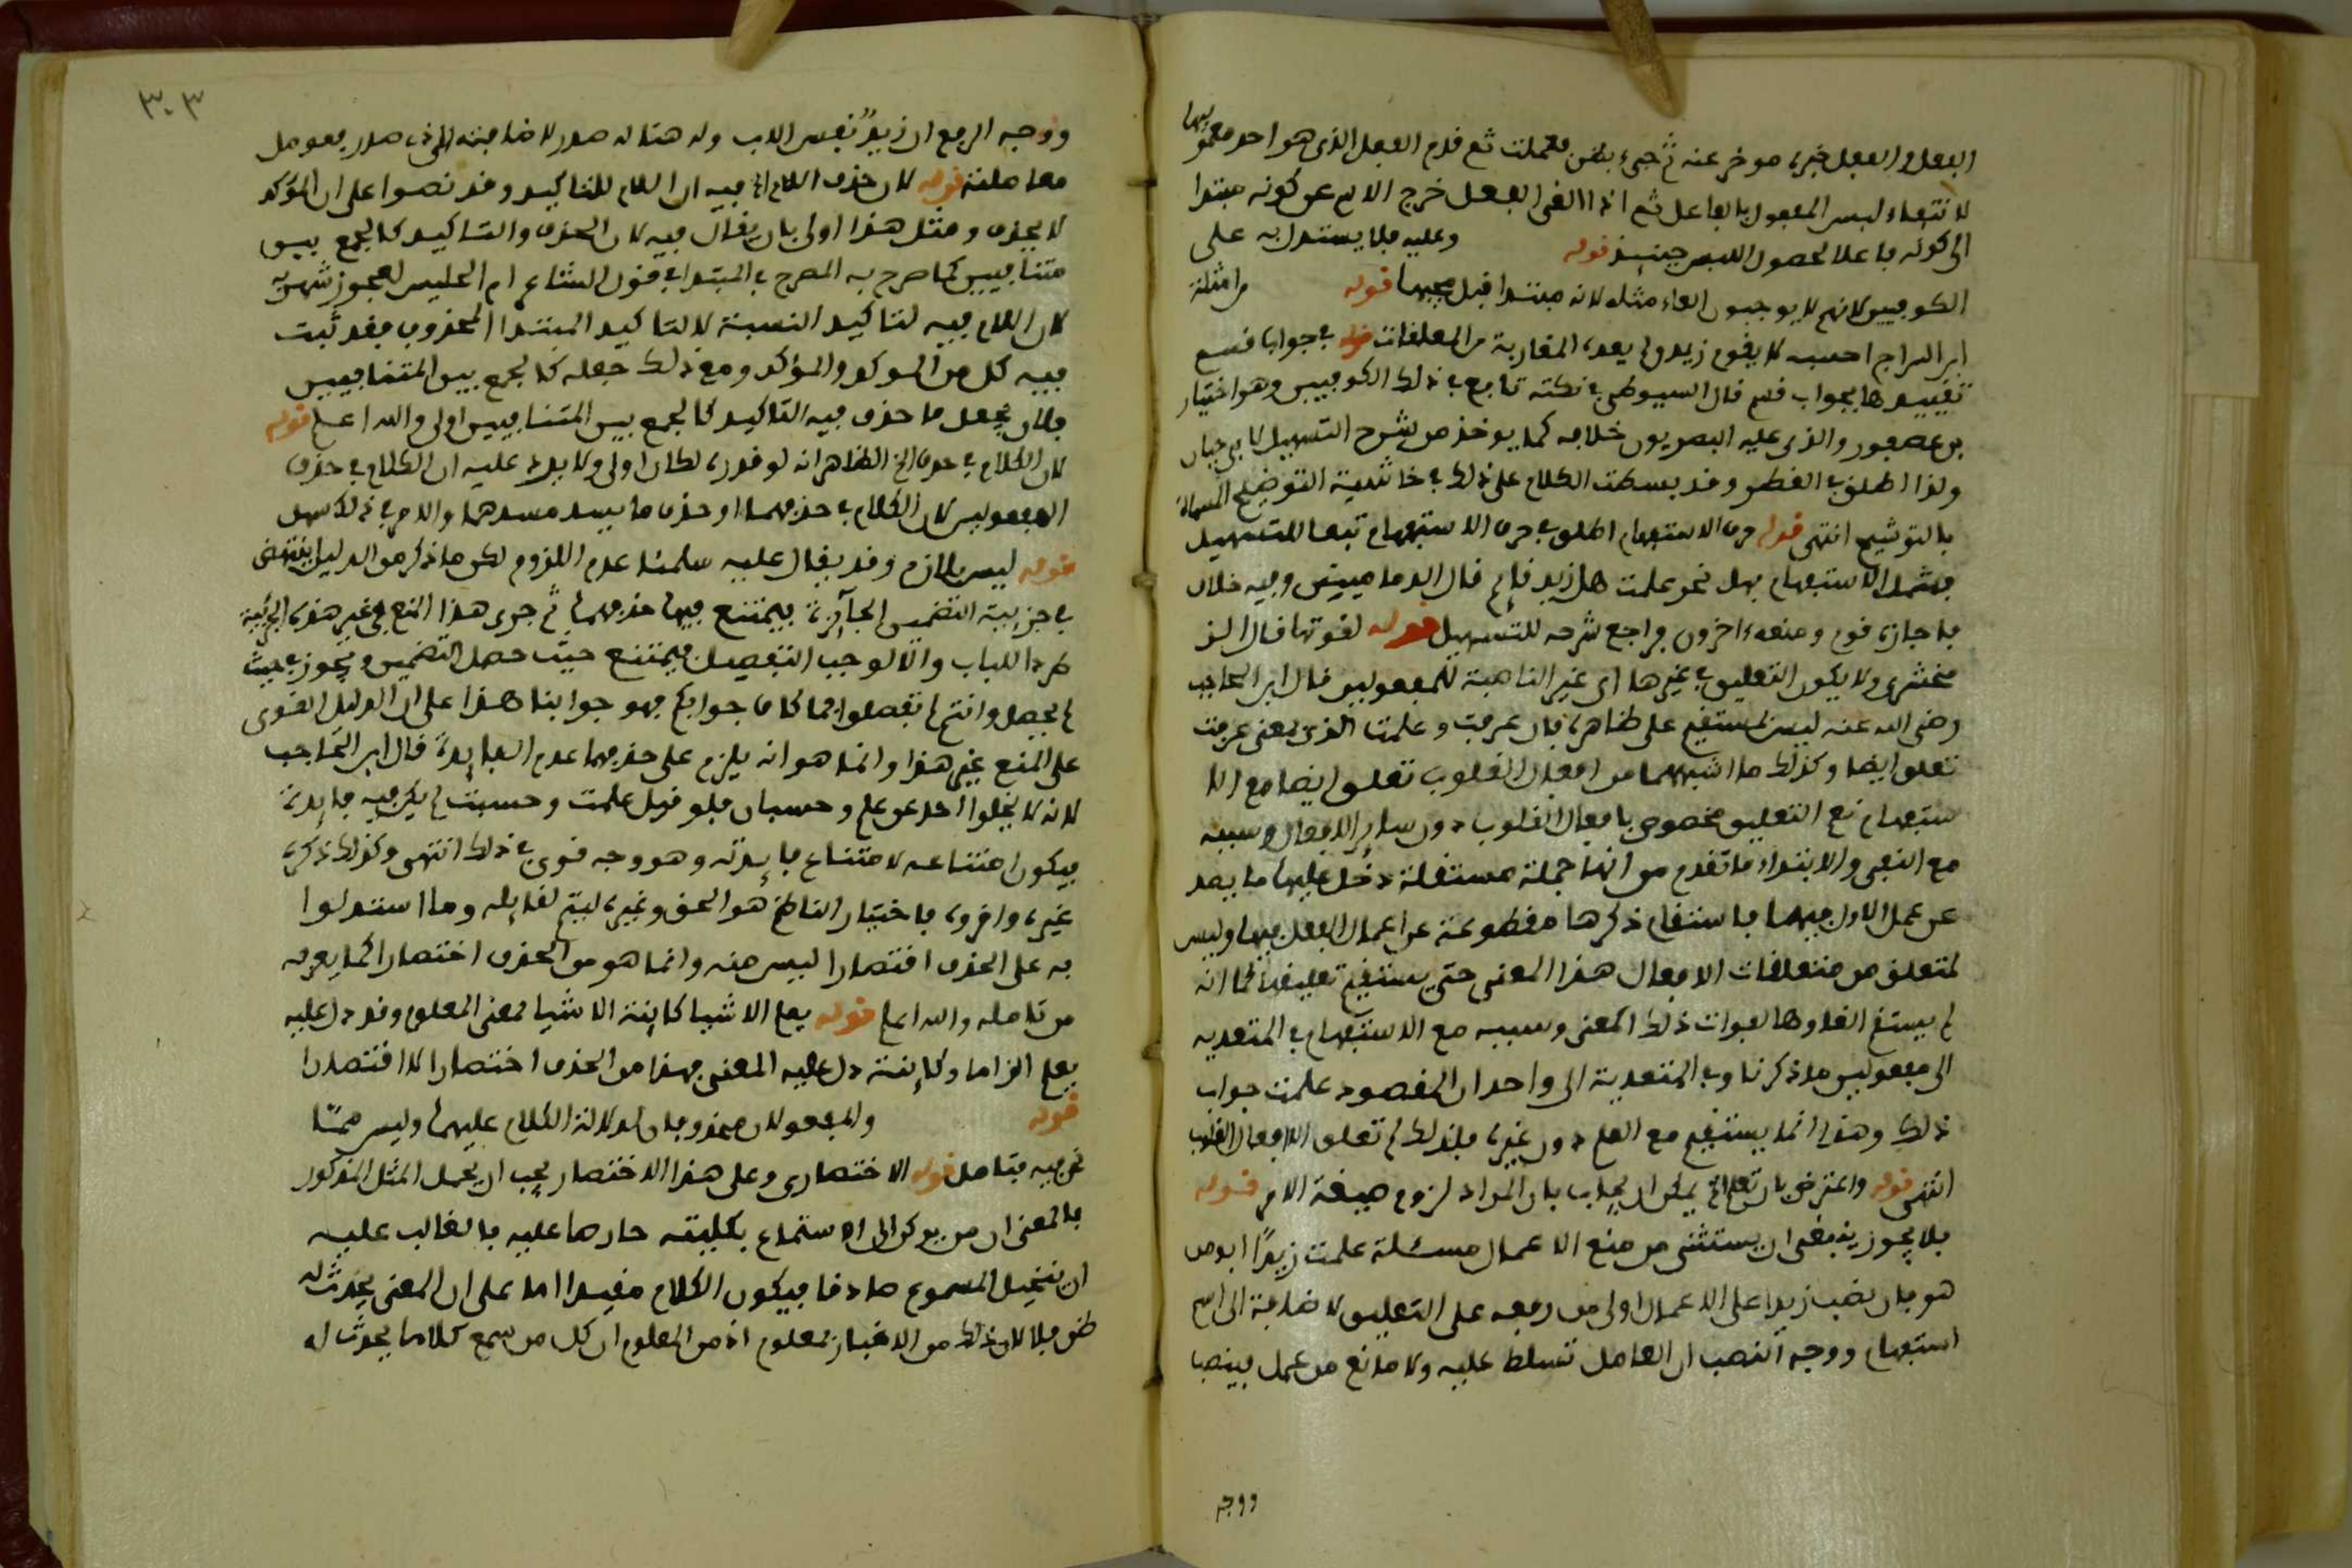 الفعل والفعل خبره موخر عنه ثم جىء بظن فعملت ثم قدم الفعل الذى هو احد معموليها
لانتفاء لبس المفعول بالفاعل ثم اذا الغى الفعل خرج الاسم عن كونه مبتدا
الى كونه فاعلا لحصول اللبس حينيذ قوله وعليه فلا يستدل به على
الكوفيين لانهم لا يوجبون الغاء مثله لانه مبتدا قبل مجيها قوله من امثلة
ابن السراج احسبه لا يقوم زيد ولم يعده المغاربة من المعلقات قوله فى جواب قسم
تقييدها بجواب قسم قال السيوطى فى نكته تابع فى ذلك الكوفيين وهو اختيار
بن عصفور والذى عليه البصريون خلافه كما يوخذ من شرح التسهيل لابى حيان
ولذا اطلق فى القطر وقد بسطت الكلام على ذلك فى حاشية التوضيح المسماة
بالتوشيح انتهى قوله حرف الاستفهام اطلق فى حرف الاستفهام تبعا للتسهيل
فشمل الاستفهام بهل نحو علمت هل زيد قايم قال الدماميني وفيه خلاف
فاجازه قوم ومنعه ءاخرون فراجع شرحه للتسهيل قوله لقوتها قال الز
مخشرى ولا يكون التعليق فى غيرها اى غير الناصبة للمفعولين قال ابن الحاجب
رضى الله عنه ليس بمستقيم على ظاهره فان عرفت وعلمت الذى بمعنى عرفت
تعلق ايضا وكذلك ما اشبههما من افعال القلوب تعلق ايضا مع الا
ستفهام نعم التعليق مخصوص بافعال القلوب دون ساير الافعال وسببه
مع النفى والابتداء ما تقدم من انها جملة مستقلة دخل عليها ما يصد
عن عمل الاول فيهما فاستقام ذكرها مقطوعة عن اعمال الفعل فيها وليس
لمتعلق من متعلقات الافعال هذا المعنى حتى يستقيم تعليقها كما انه
لم يستقم الغاوها لفوات ذلك المعنى وسببه مع الاستفهام فى المتعديه
الى مفعولين ما ذكرنا وفى المتعدية الى واحد ان المقصود علمت جواب
ذلك وهذا انما يستقيم مع العلم دون غيره فلذلك لم تعلق الا افعال القلوب
انتهى قوله واعترض بان تعلم الخ يمكن ان يجاب بان المراد لزوم صيغة الامر قوله
فلا يجوز ينبغى ان يستثنى من منع الاعمال مسئلة علمت زيدًا ابو من
هو فان نصب زيدا على الاعمال اولى من رفعه على التعليق لاضافة الى اسم
استفهام ووجه النصب ان العامل تسلط عليه ولا مانع من عمل فينصبا
ووجه
٣٠٣
ووجه الرفع ان زيدٌ نفس الاب وله هنا له صدر لاضافته للذى صدر فعومل
معاملته قوله لان حذف اللام الخ فيه ان اللام للتاكيد وقد نصوا على ان المؤكد
لا يحذف ومثل هذا اولى بان يقال فيه لان الحذف والتاكيد كالجمع بين
متنافيين كما صرح به المصرح فى المبتدا فى قول الشاعر ام الحليس لعجوز شهربه
لان اللام فيه لتاكيد النسبة لا لتاكيد المبتدا المحذوف فقد ثبت
فيه كل من الموكد والمؤكد ومع ذلك جعله كالجمع بين المتنافيين
فلان يجعل ما حذف فيه التاكيد كالجمع بين المتنافيين اولى والله اعلم قوله
لان الكلام فى حذف الخ الظاهر انه لو قدره لكان اولى ولا يرد عليه ان الكلام فى حذف
المفعولين لان الكلام فى حذفهما او حذف ما يسد مسدهما والامر فى ذلك سهل
قوله ليس بلازم وقد يقال عليه سلمنا عدم اللزوم لكن ما ذكر من الدليل يقتضى
فى جزيية التضمين الجآيزة فيمتنع فيها حذفهما ثم جرى هذا المنع فى غير هذه الجزئية
طردا للباب والا لوجب التفصيل فيمتنع حيث حصل التضمين ويجوز فى حيث
لم يحصل وانتم لم تفصلوا فما كان جوابكم فهو جوابنا هذا على ان الدليل القوى
على المنع غير هذا وانما هو انه يلزم على حذفهما عدم الفايدة قال ابن الحاجب
لانه لا يخلوا احد عن علم وحسبان فلو قيل علمت وحسبت لم يكن فيه فايدة
فيكون امتناعه لامتناع فايدته وهو وجه قوى فى ذلك انتهى وكذلك ذكره
غيره واقروه فاختيار الناظم هو الحق وغيره ليتم لقايله وما استدلوا
به على الحذف اقتصارا ليس منه وانما هو من الحذف اختصارا كما يعرفه
من تامله والله اعلم قوله يعلم الاشيا كاينة الاشيا بمعنى المعلوم وقد دل عليه
يعلم الزاما وكاينة دل عليه المعنى فهذا من الحذف اختصارا لا اقتصارا
قوله والمفعولان محذوفان لدلالة الكلام عليهما وليس ممّا
نحن فيه فتامل قوله الاختصارى وعلى هذا الاختصار يجب ان يحمل المثل المذكور
فالمعنى ان من يركن الى الاستماع بكليته صارها عليه فالغالب عليه
ان يتخيل المسموع صادقا فيكون الكلام مفيدا اما على ان المعنى يحدث له
ظن فلا لان ذلك من الاخبار بمعلوم اذ من المعلوم ان كل من سمع كلاما يحدث له